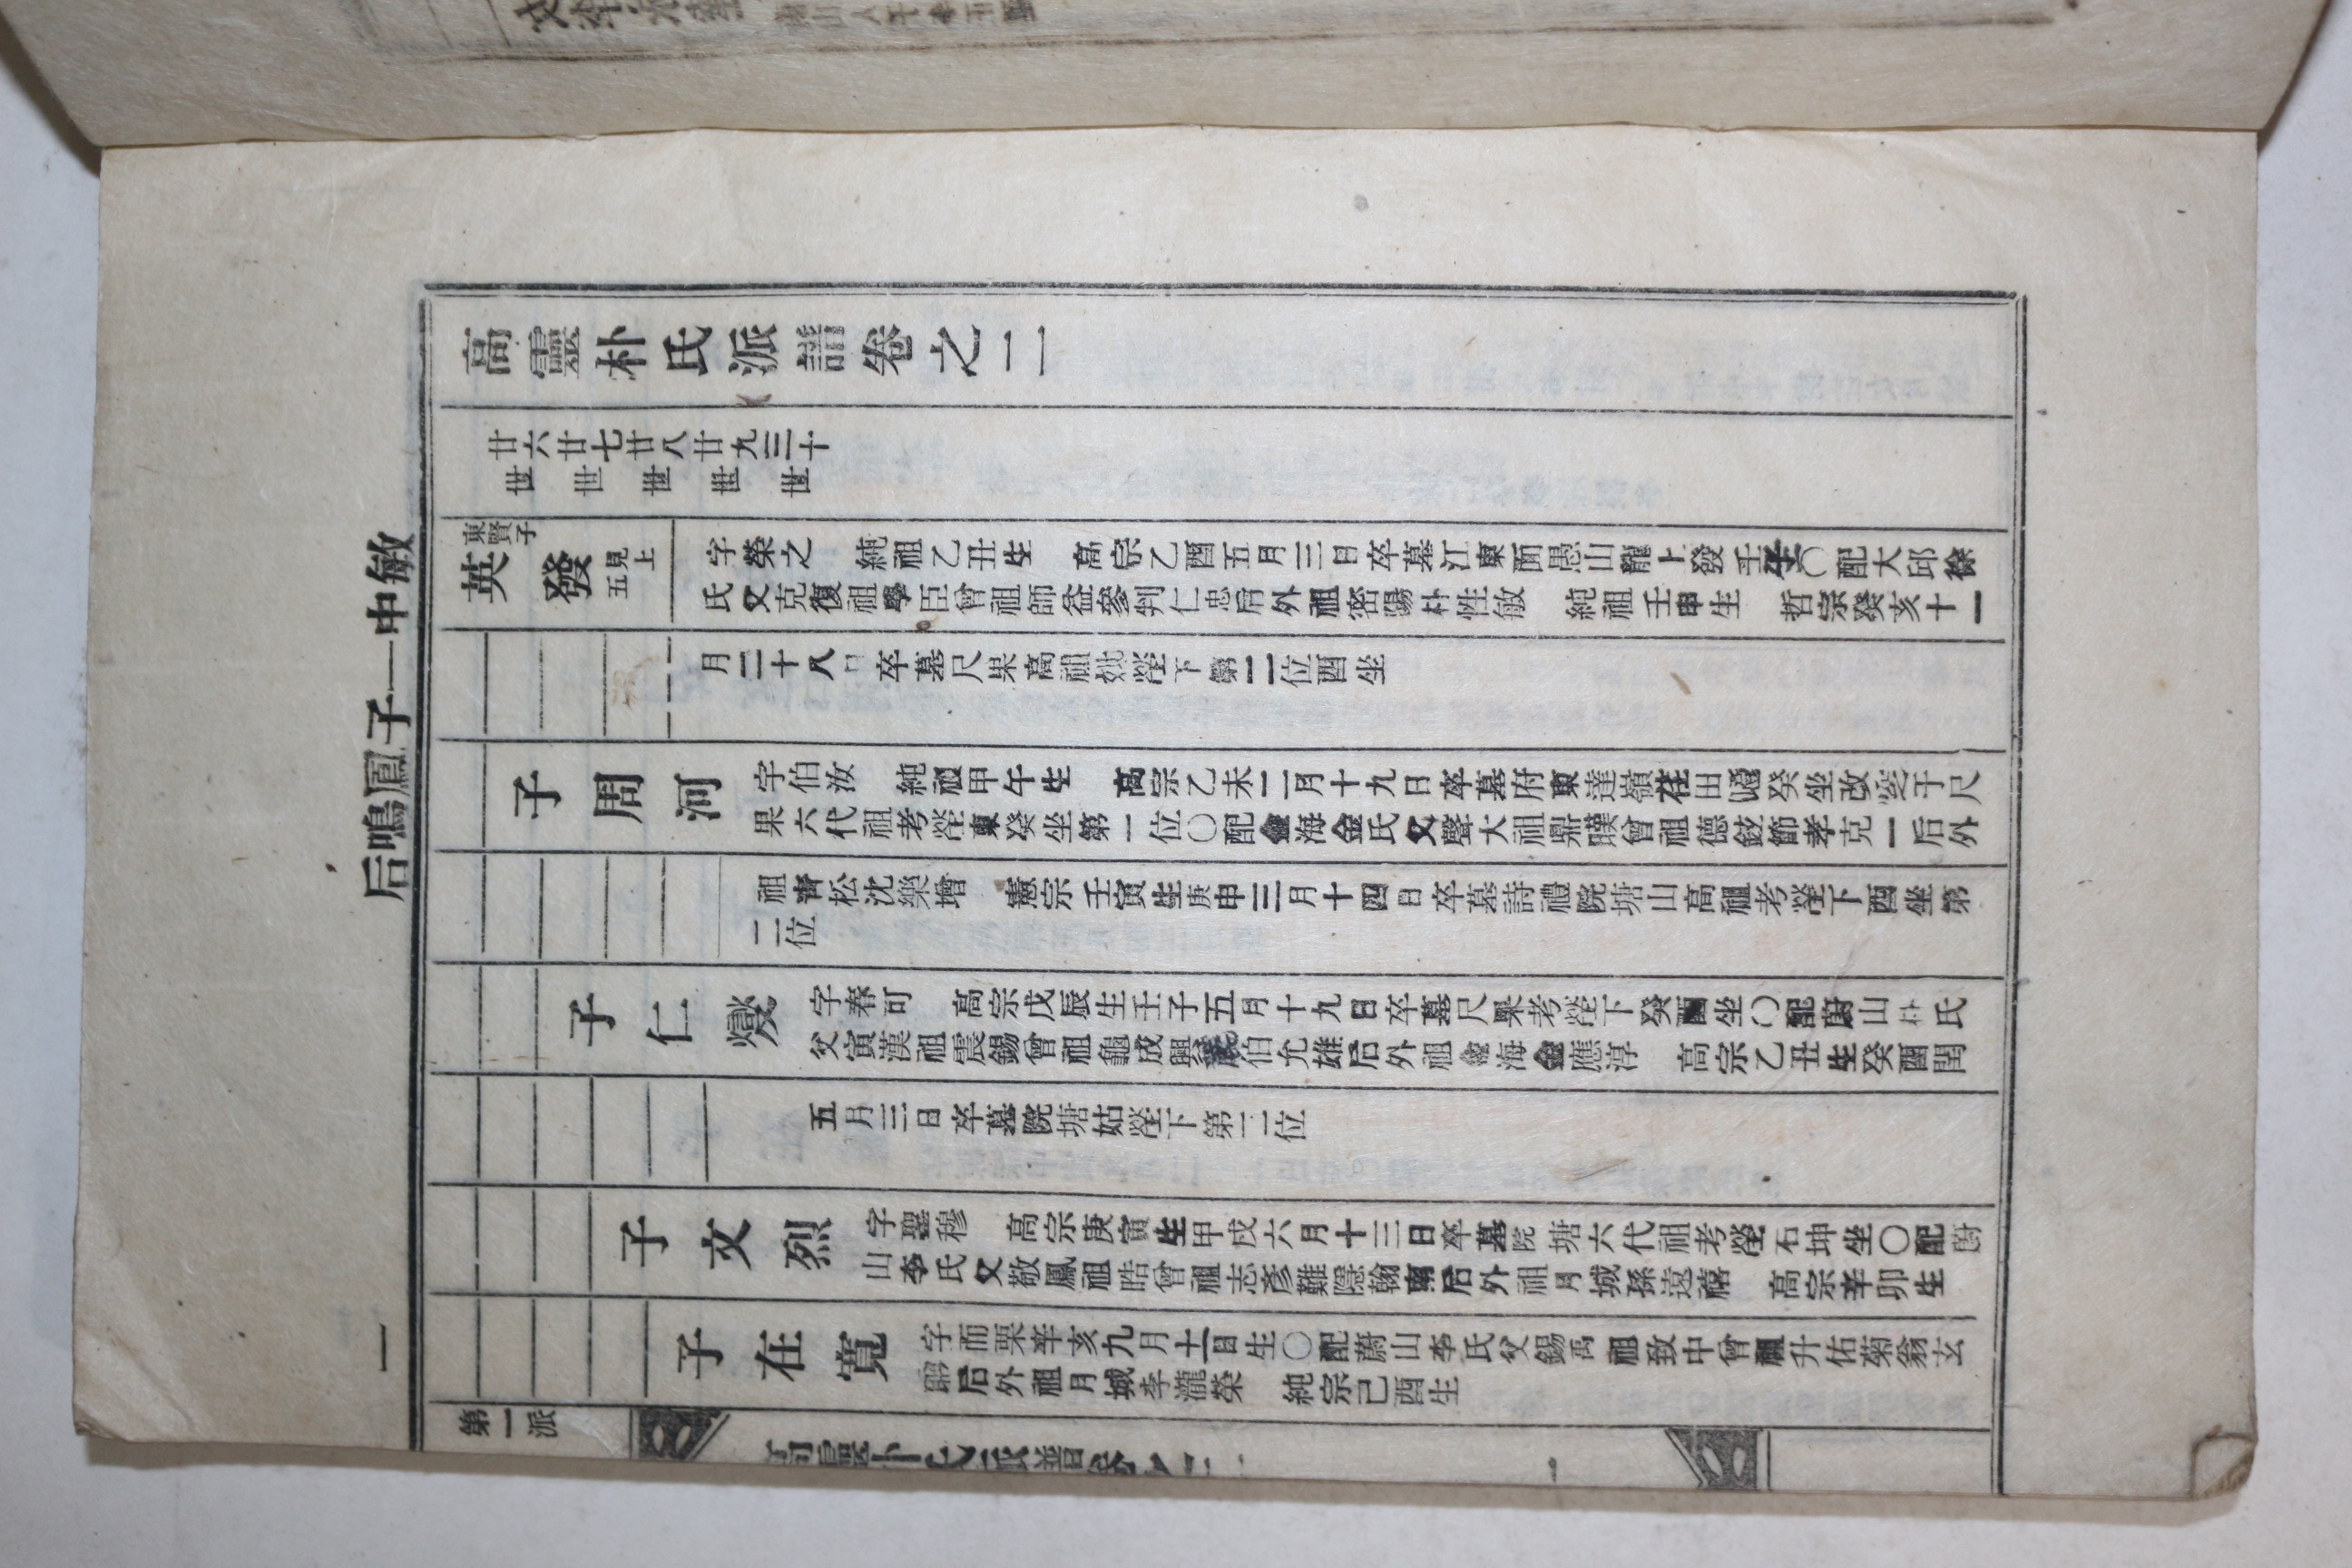 敏中一子鳳鳴后
一
高靈朴氏派譜卷之二
廿六世 廿七世 廿八世 廿九世 三十世
東賢子
英發
見上五
字榮之 純祖乙丑生 高宗乙酉五月三日卒墓江東面愚山龍上發壬坐〇配大邱徐
氏父克復祖學臣曾祖師益參判仁忠后外祖密陽朴性敏 純祖壬申生 哲宗癸亥十一
月二十八日卒墓尺果高祖妣塋下第二位酉坐
子周河
字伯汝 純祖甲午生 高宗乙未二月十九日卒墓府東達嶺在田嶝癸坐改窆于尺
果六代祖考塋東癸坐第一位〇配金海金氏父聲大祖鼎暵曾祖德鉉節孝克一后外
祖靑松沈樂增 憲宗壬寅生庚申三月十四日卒墓詩禮院塘山高祖考塋下酉坐第
二位
子仁燮
字春可 高宗戊辰生壬子五月十九日卒墓尺果考塋下癸酉坐〇配蔚山朴氏
父寅漢祖震錫曾祖龜成興麗伯允雄后外祖金海金應淳 高宗乙丑生癸酉閏
五月三日卒墓院塘姑塋下第三位
子文烈
字聖穆 高宗庚寅生甲戌六月十三日卒墓院塘六代祖考塋右坤坐〇配蔚
山李氏父敬鳳祖晧曾祖志彥難隱翰南后外祖月城孫遠禧 高宗辛卯生
子在寬
字而栗辛亥九月十一日生〇配蔚山李氏父錫禹祖致中曾祖升佑菊翁玄
昭后外祖月城李瀧榮 純宗己酉生
第一派
高靈朴氏派譜卷之二
一